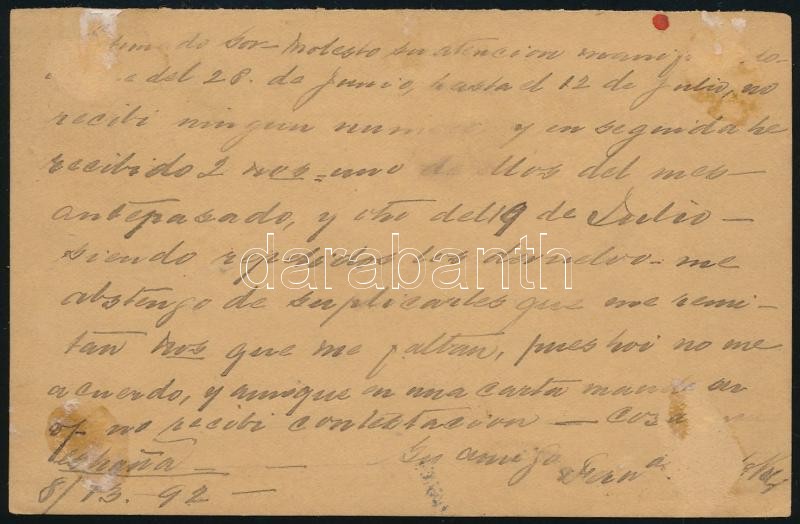 do Sor Molesto su atencion
del 28. de Junio, hasta el 12 de Julio, no
recibi ningun numero, y en seguida he
recibido 2 nos = uno de ellos del mes
antepasado, y otro del 19 de Julio —
siendo repetidos los devuelvo — me
abstengo de suplicarles que me remi-
tan nos que me faltan, pues hoi no me
acuerdo, y aunique en una carta
no recibi contestacion — cosa
España —
Su amigo
8/13. 92 —
darabanth